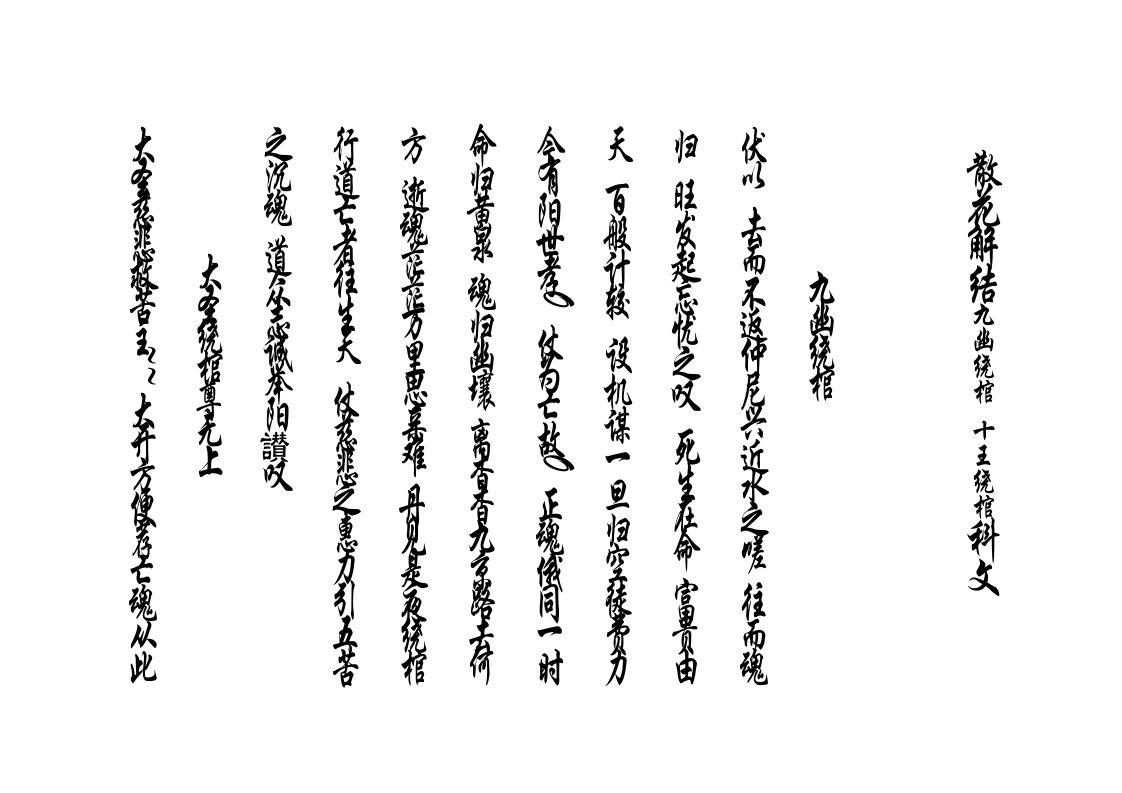 散花解结九幽绕棺 十王绕棺科文
九幽绕棺
伏以 去而不返仲尼兴近水之嗟 往而魂
归 旺发起忘忧之叹 死生在命 富貴由
天 百般计较 设机谋一旦归空徒費力
今有阳世孝 仗为亡故 正魂儀同一时
命归黄泉 魂归幽壤 离杳杳九京路去何
方 逝魂茫茫万里思亲难 丹见是夜绕棺
行道亡者往生天 仗慈悲之惠力引五苦
之沉魂 道众志诚举阳讃叹
大圣绕棺尊无上
大圣慈悲救苦王〻 大开方便荐亡魂从此